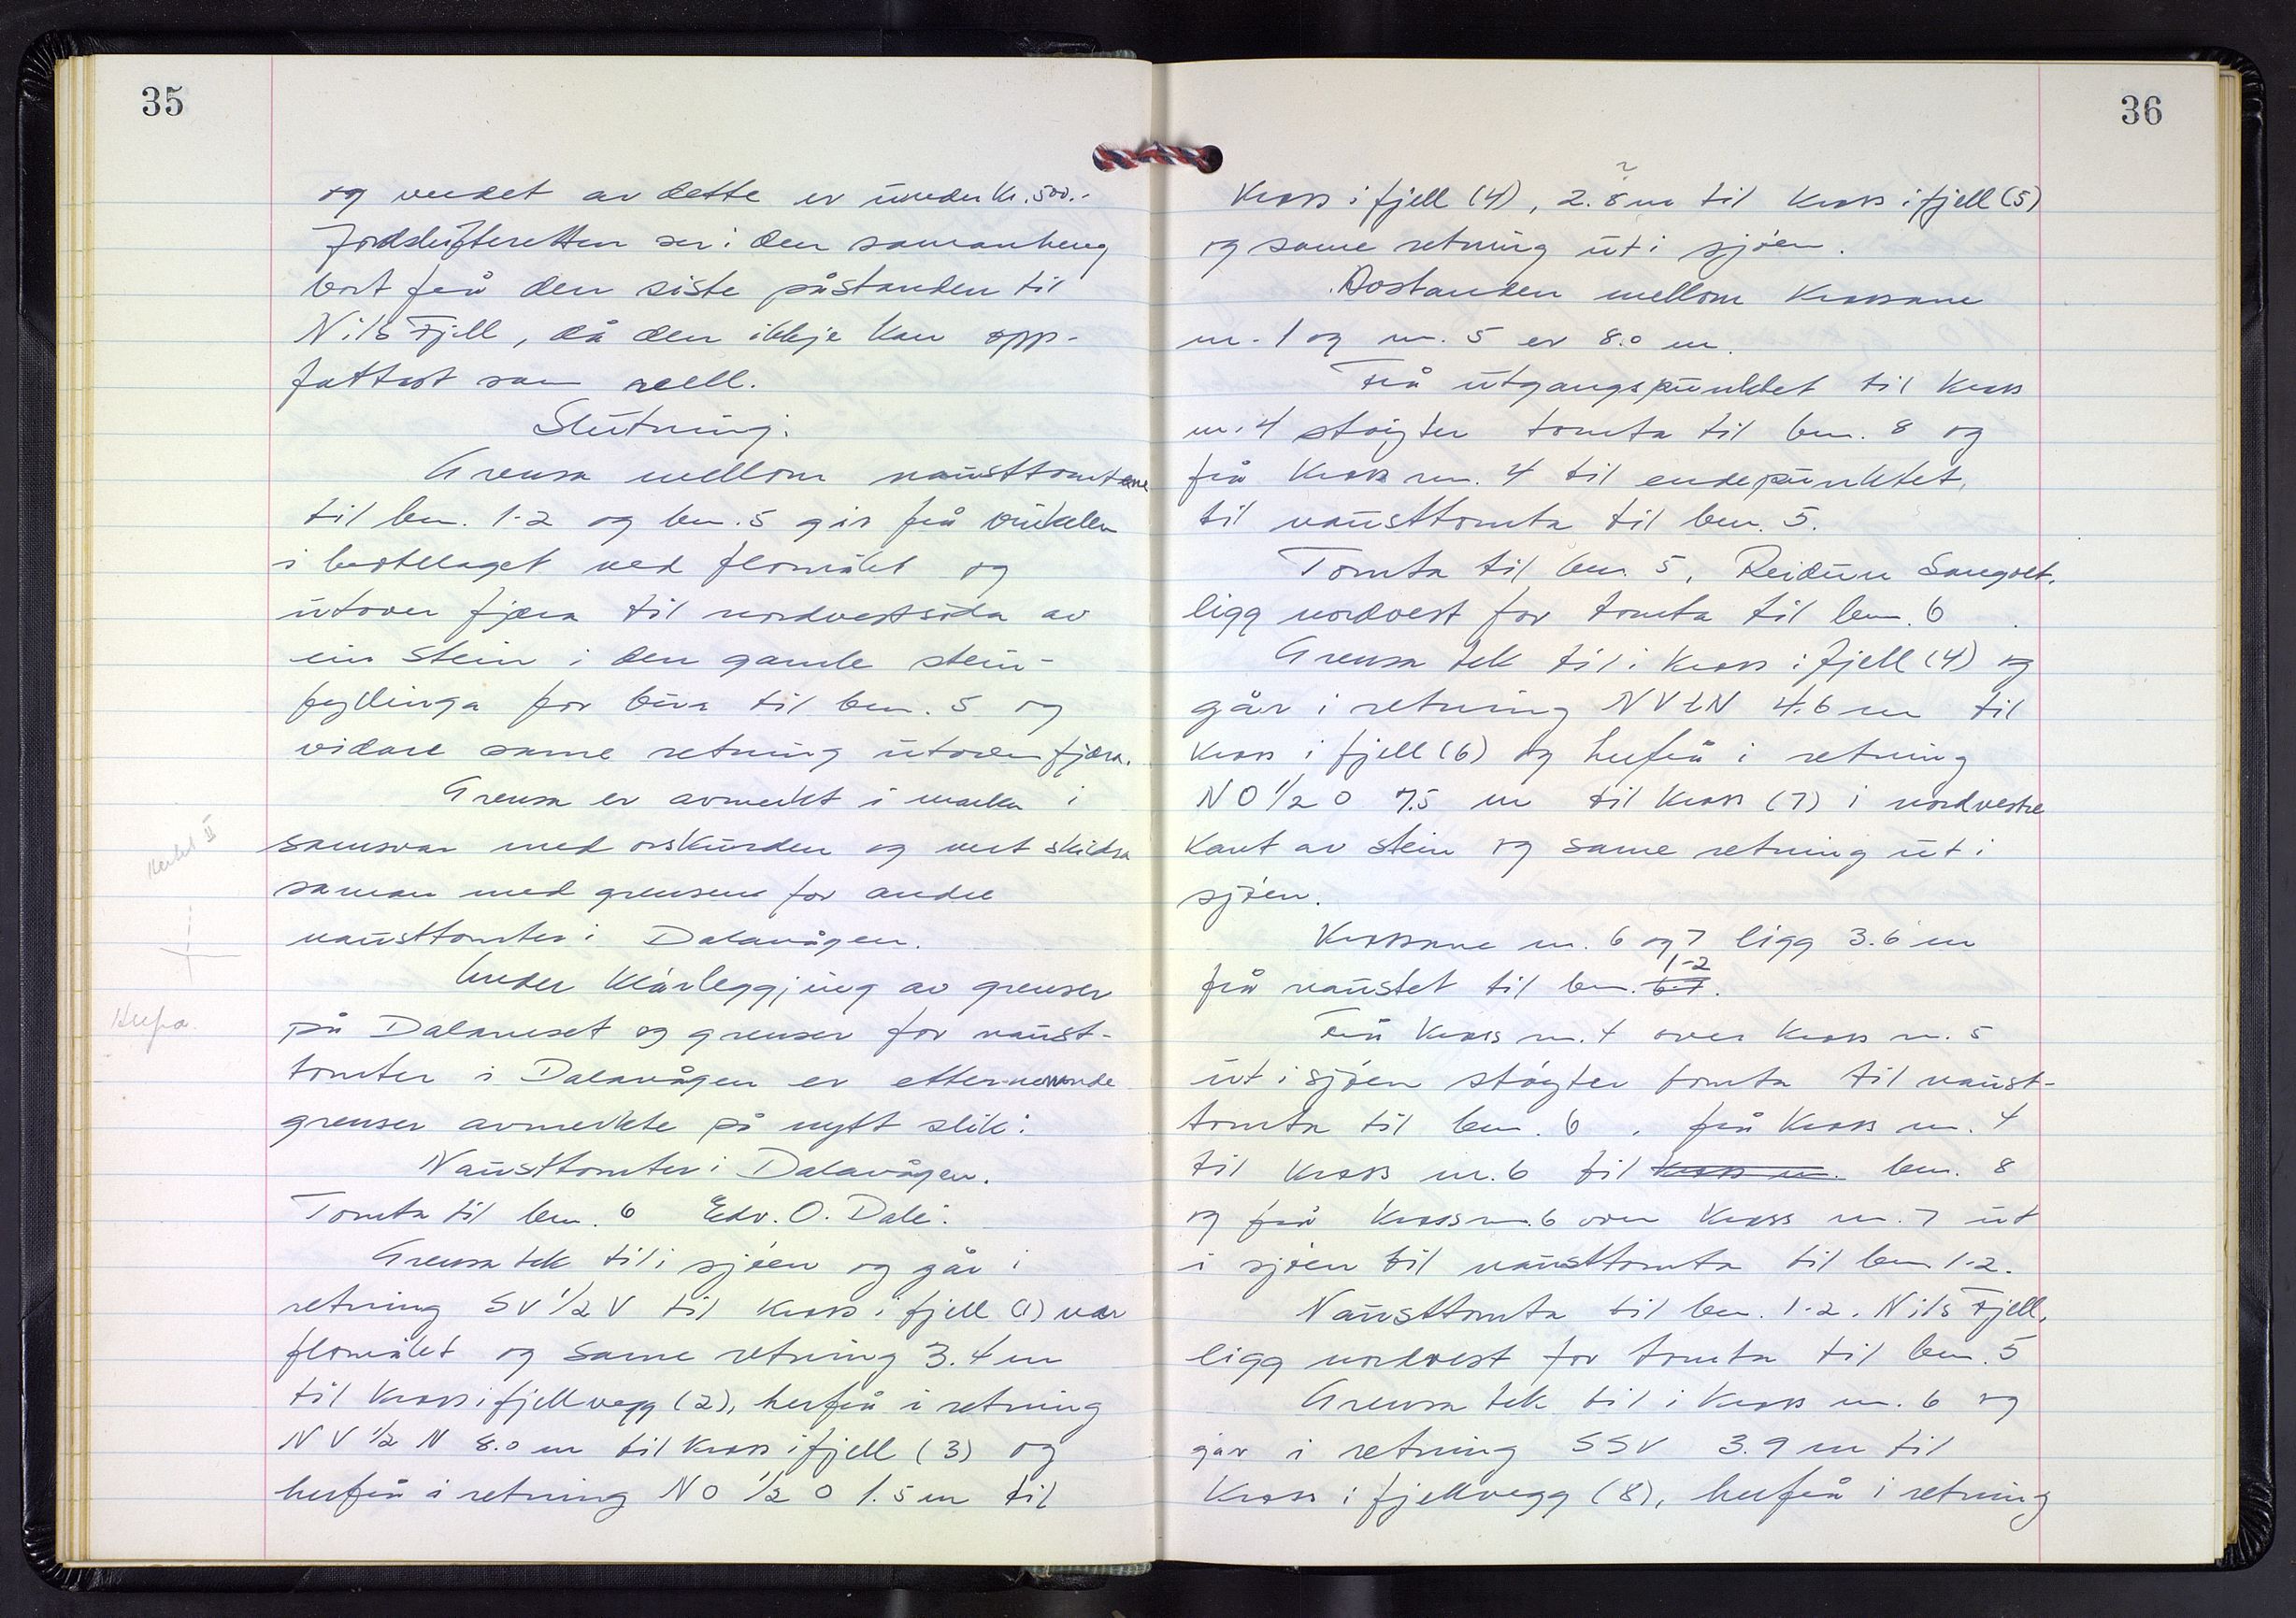 35
og verdet av dette er under Kr. 500.-
Jordskifteretten ser i den samanheng
bort frå den siste påstanden til
Nils Fjell, då den ikkje kan opp-
fattast som reell.
Slutning:
Grensa mellom nausttomtene
til bnr. 1-2 og bnr. 5 går frå vinkelen
i bortlaget ved flomålet og
utover fjæra til nordvestsida av
ein stein i den gamle stein-
fyllinga for bua til bnr. 5 og
vidare same retning utover fjæra.
Grensa er avmerkt i marka i
samsvar med orskurden og vert skildra
saman med grensene for andre
nausttomter i Dalavågen.
Under klårleggjing av grenser
på Dalaneset og grenser for naust-
tomter i Dalavågen er etternemnde
grenser avmerkte på nytt slik:
Nausttomter i Dalavågen.
Tomta til bnr. 6 Edv. O. Dale.
Grensa tek til i sjøen og går i
retning SV 1/2 V til kross i fjell (1) nær
flomålet og same retning 3.4 m
til kross i fjellvegg (2), herfrå i retning
NV 1/2 N 8.0 m til kross i fjell (3) og
herfrå i retning NO 1/2 O 1.5 m til
Merket II
Herfra.
36
kross i fjell (4), 2.8 m til kross i fjell (5)
og same retning ut i sjøen.
Avstanden mellom krossane
nr. 1 og nr. 5 er 8.0 m.
Frå utgangspunktet til kross
nr. 4 støyter tomta til bnr. 8 og
frå kross nr. 4 til endepunktet,
til nausttomta til bnr. 5.
Tomta til bnr. 5, Reidun Sangolt,
ligg nordvest for tomta til bnr. 6.
Grensa tek til i kross i fjell (4) og
går i retning NVtN 4.6 m til
kross i fjell (6) og herfrå i retning
NO 1/2 O 7.5 m til kross (7) i nordvestre
kant av stein og same retning ut i
sjøen.
Krossane nr. 6 og 7 ligg 3.6 m
frå naustet til bnr. 1-2.
Frå kross nr. 4 over kross nr. 5
ut i sjøen støyter tomta til naust-
tomta til bnr. 6, frå kross nr. 4
til kross nr. 6 til kross nr. bnr. 8
og frå kross nr. 6 over kross nr. 7 ut
i sjøen til nausttomta til bnr. 1-2.
Nausttomta til bnr. 1-2. Nils Fjell,
ligg nordvest for tomta til bnr. 5
Grensa tek til i kross nr. 6 og
går i retning SSV 3.9 m til
kross i fjellvegg (8), herfrå i retning